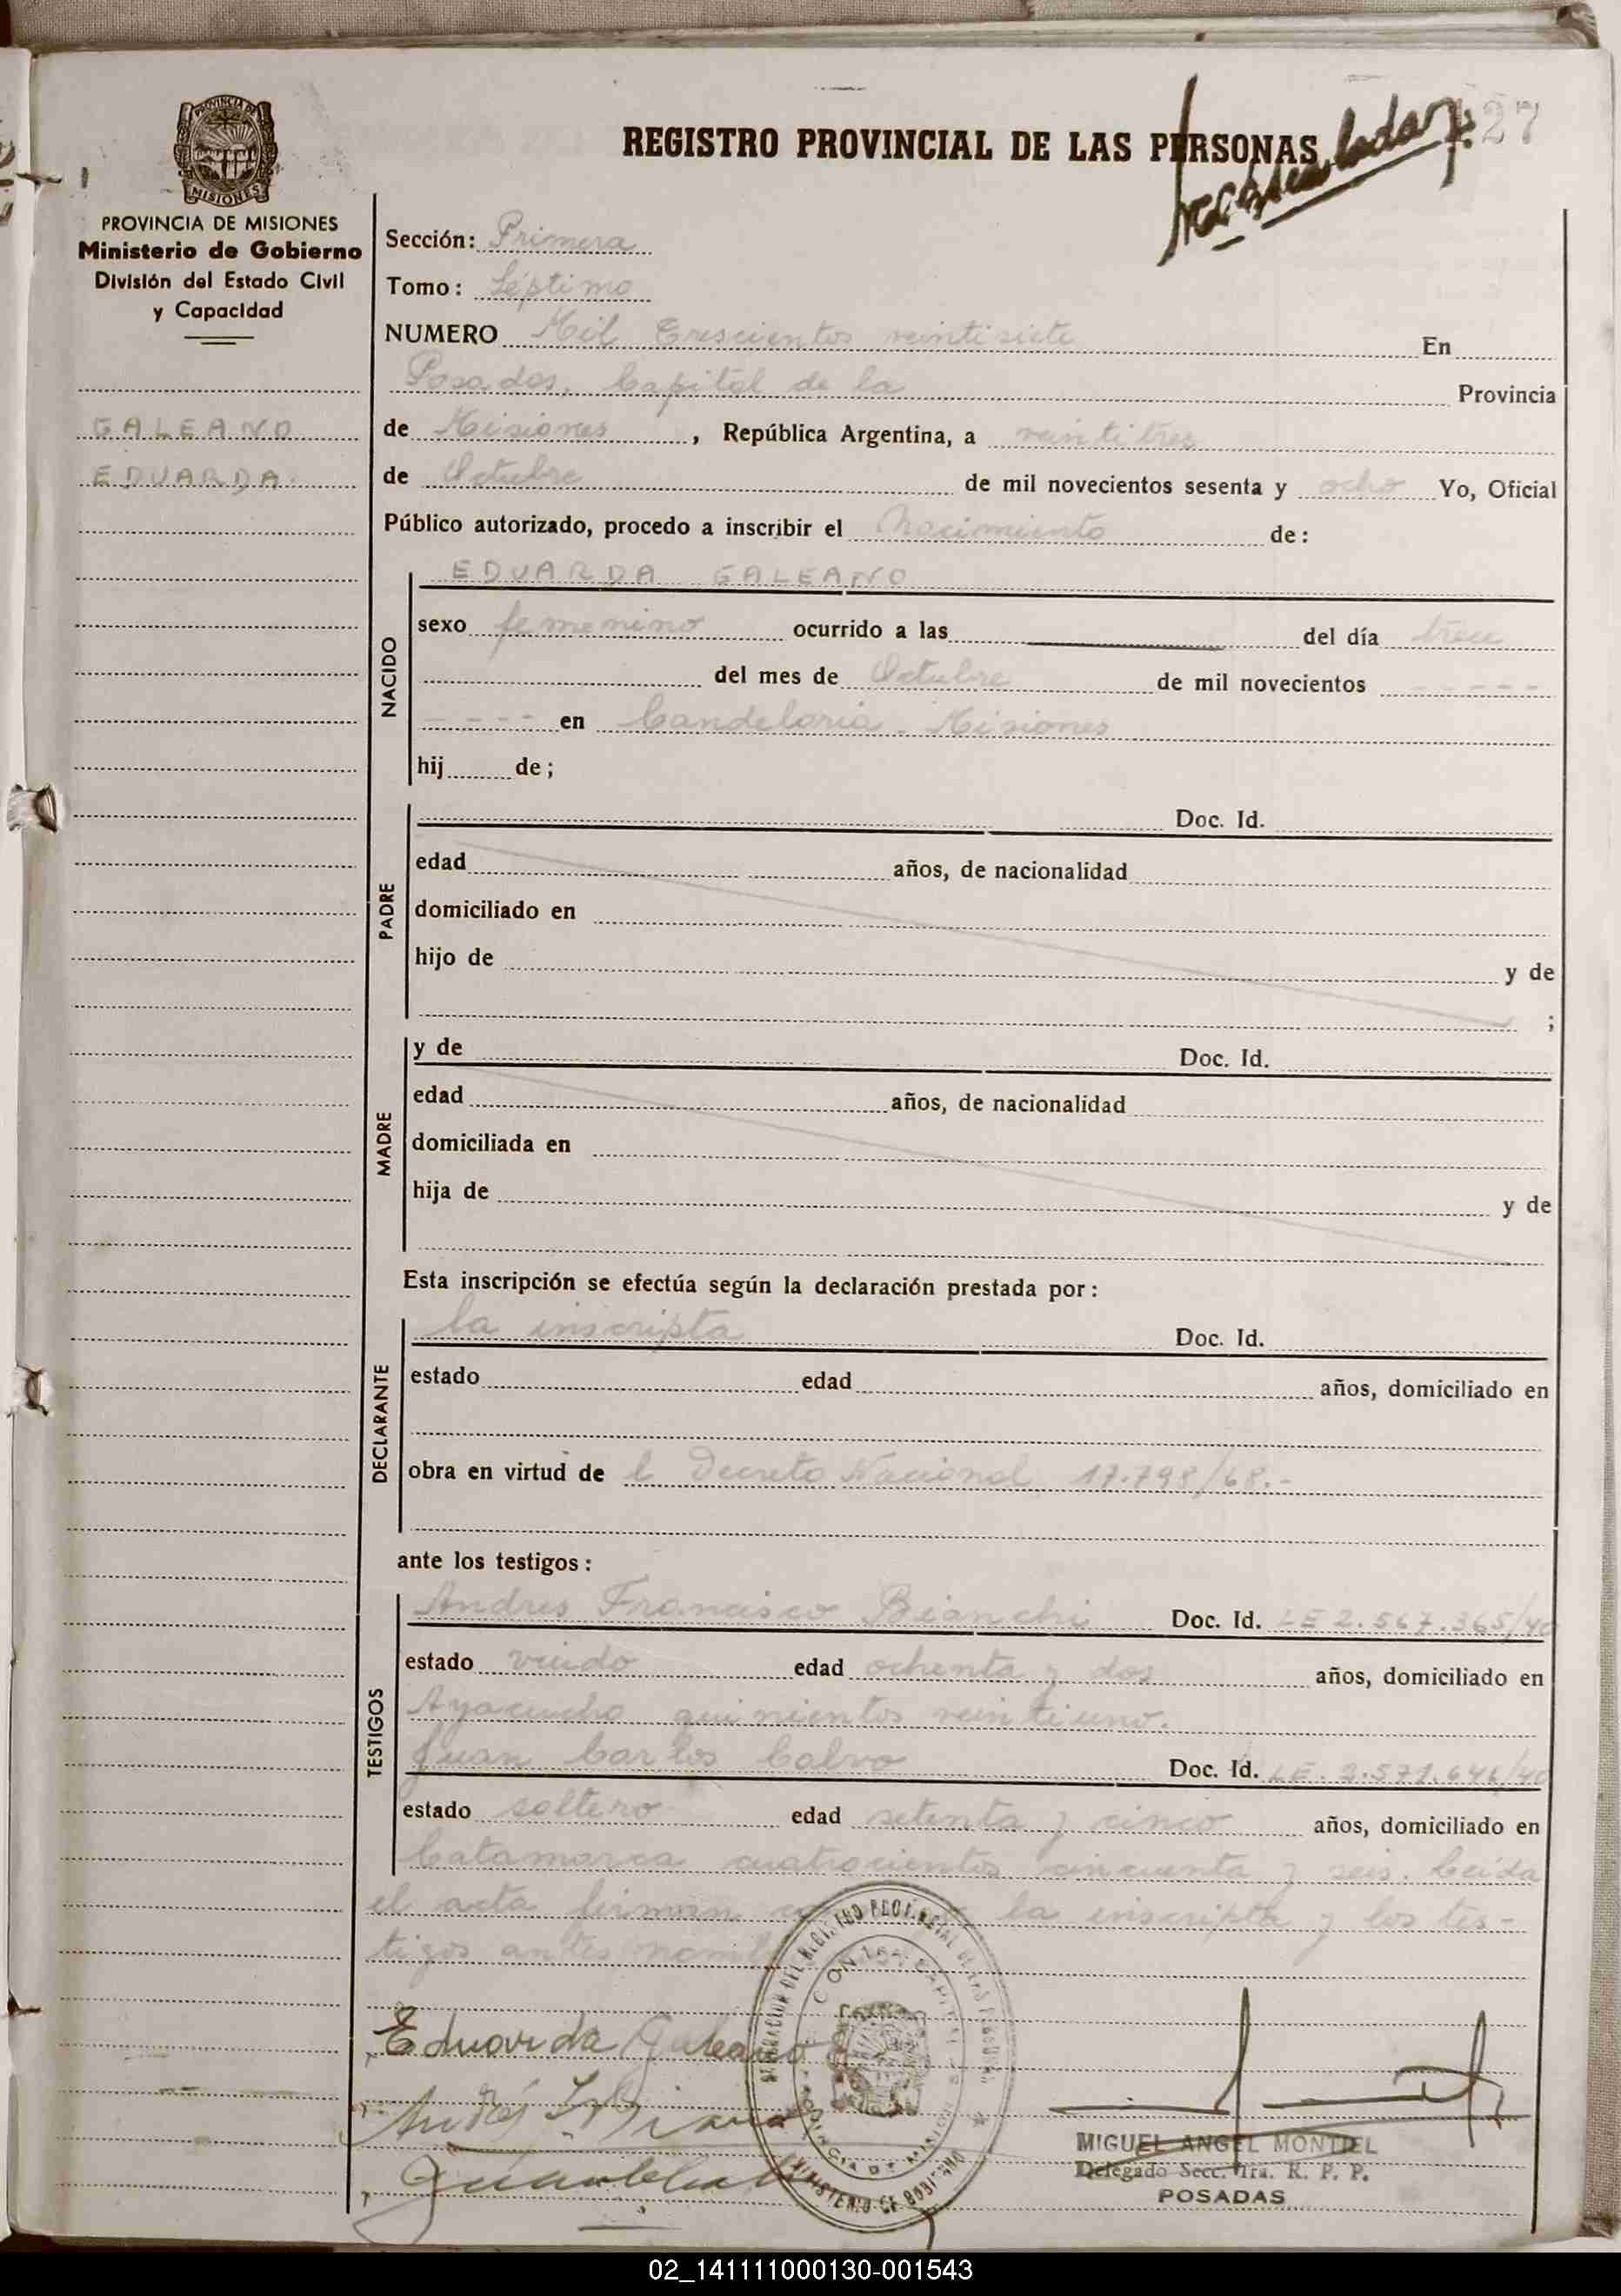 27
PROVINCIA DE
MISIONES
PROVINCIA DE MISIONES
Ministerio de Gobierno
División del Estado Civil
y Capacidad
GALEANO
EDUARDA
REGISTRO PROVINCIAL DE LAS PERSONAS
Sección: Primera
Tomo: Séptimo
NUMERO Mil Trescientos veintisiete En
Posadas, Capital de la Provincia
de Misiones, República Argentina, a veintitres
de Octubre de mil novecientos sesenta y ocho Yo, Oficial
Público autorizado, procedo a inscribir el Nacimiento de:
NACIDO
EDUARDA GALEANO
sexo femenino ocurrido a las del día trece
del mes de Octubre de mil novecientos - - - - -
- - - - en Candelaria. Misiones
hij de;
PADRE
Doc. Id.
edad años, de nacionalidad
domiciliado en
hijo de y de
;
MADRE
y de Doc. Id.
edad años, de nacionalidad
domiciliada en
hija de y de
Esta inscripción se efectúa según la declaración prestada por:
DECLARANTE
la inscripta Doc. Id.
estado edad años, domiciliado en
obra en virtud de l Decreto Nacional 17.798/68.-
ante los testigos:
TESTIGOS
Andres Francisco Bianchi Doc. Id. LE 2.567.365/40
estado viudo edad ochenta y dos años, domiciliado en
Ayacucho quinientos veintiuno.
Juan Carlos Calvo Doc. Id. LE. 2.571.646/40
estado soltero edad setenta y cinco años, domiciliado en
Catamarca cuatrocientos cincuenta y seis. Leida
el acta firman la inscripta y los tes-
tigos antes
Eduarda Galeano
MINISTERIO DE GOBIERNO
MIGUEL ANGEL MONTIEL
Delegado Secc. 1ra. R. P. P.
POSADAS
02_141111000130-001543